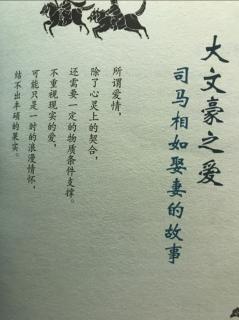 大文豪之爱
司马相如娶妻的故事
所谓爱情，
除了心灵上的契合，
还需要一定的物质条件支撑。
不重视现实的爱，
可能只是一时的浪漫情怀，
结不出丰硕的果实。